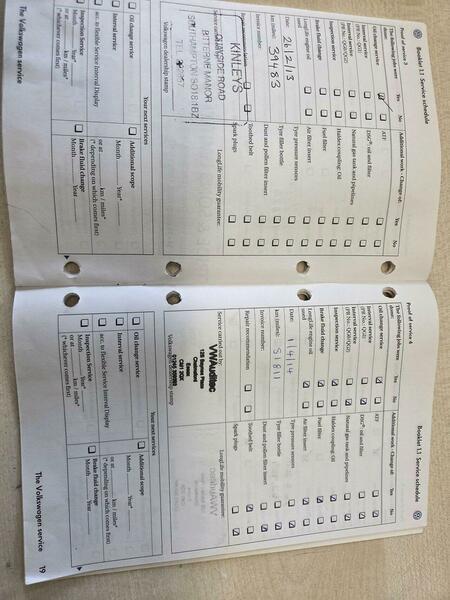 Booklet 1.1 Service schedule
Proof of service 3
The following jobs were done:
Yes
No
Additional work - Change of:
Yes
No
Oil change service
ATF
Interval service
(PR No.: QG1)
DSG®: oil and filter
Interval service
(PR No.: QG0/QG2)
Natural gas tank and pipelines
Inspection service
Haldex coupling: Oil
Brake fluid change
Fuel filter
LongLife engine oil used
Air filter insert
Date: 26/2/13
Tyre pressure sensors
km (miles): 39483
Tyre filler bottle
Invoice number:
Dust and pollen filter insert
Toothed belt
Spark plugs
Service carried out by:
LongLife mobility guarantee:
KINLEYS
QUAYSIDE ROAD
BITTERNE MANOR
SOUTHAMPTON SO18 1BZ
TEL
Volkswagen dealership stamp
Your next services
Oil change service
Interval service
acc. to flexible Service Interval Display
Inspection Service
Month Year*
or at km / miles*
(* whichever comes first)
Additional scope
Month Year*
or at km / miles*
(* depending on which comes first)
Brake fluid change
Month Year
The Volkswagen service
Booklet 1.1 Service schedule
Proof of service 4
The following jobs were done:
Yes
No
Additional work - Change of:
Yes
No
Oil change service
ATF
Interval service
(PR No.: QG1)
DSG®: oil and filter
Interval service
(PR No.: QG0/QG2)
Natural gas tank and pipelines
Inspection service
Haldex coupling: Oil
Brake fluid change
Fuel filter
LongLife engine oil used
Air filter insert
Date: 11/4/14
Tyre pressure sensors
km (miles): 51811
Tyre filler bottle
Invoice number:
Dust and pollen filter insert
Repair recommendation
Toothed belt
Spark plugs
Service carried out by:
LongLife mobility guarantee:
Chelmsford
Essex
Volkswagen dealership stamp
Your next services
Oil change service
Interval service
acc. to flexible Service Interval Display
Inspection Service
Month Year*
or at km / miles*
(* whichever comes first)
Additional scope
Month Year*
or at km / miles*
(* depending on which comes first)
Brake fluid change
Month Year
The Volkswagen service 19